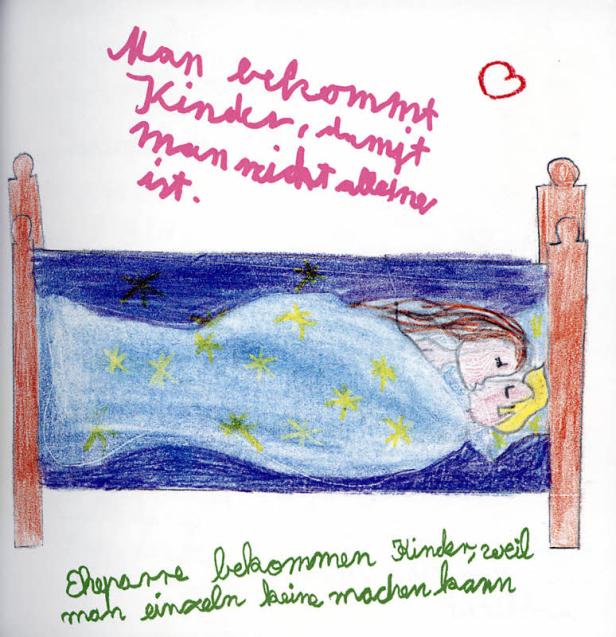 Man bekommt
Kinder, damit
man nicht alleine
ist.
Eheparre bekommen Kinder, weil
man einzeln keine machen kann